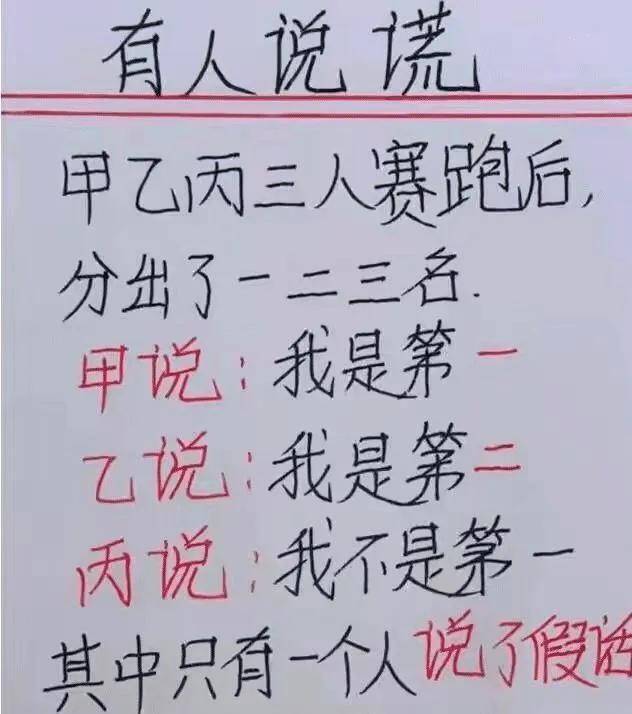 有人说谎
甲乙丙三人赛跑后,
分出了一二三名.
甲说:我是第一
乙说:我是第二
丙说:我不是第一
其中只有一个人说了假话